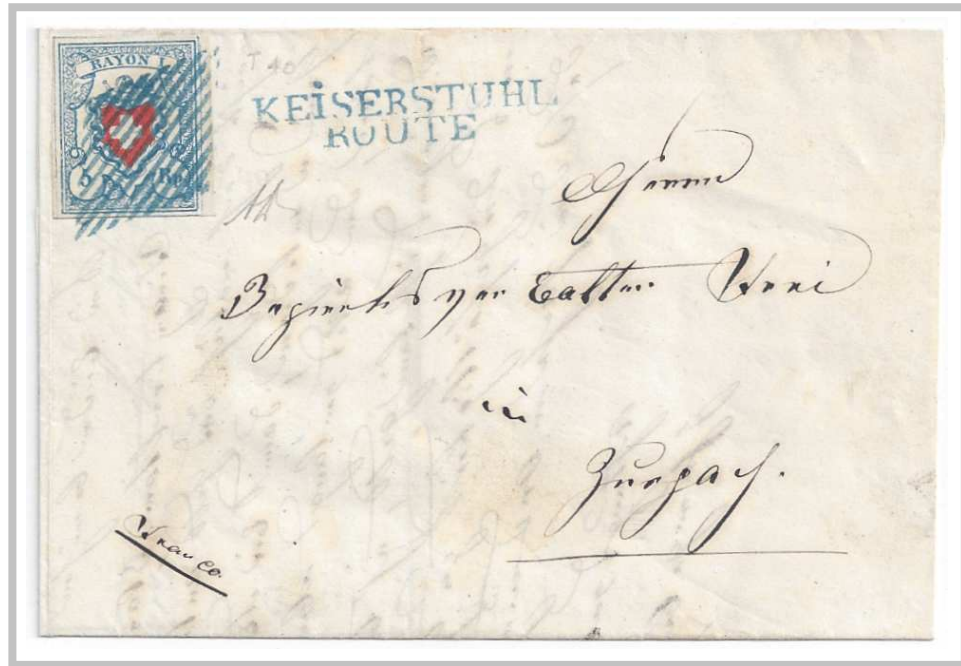 RAYON I
T 40
KEiSERSTUHL
ROUTE
5 Rp.
Herrn
Bezirksverwalter Frei
in
Zurzach.
Franco.